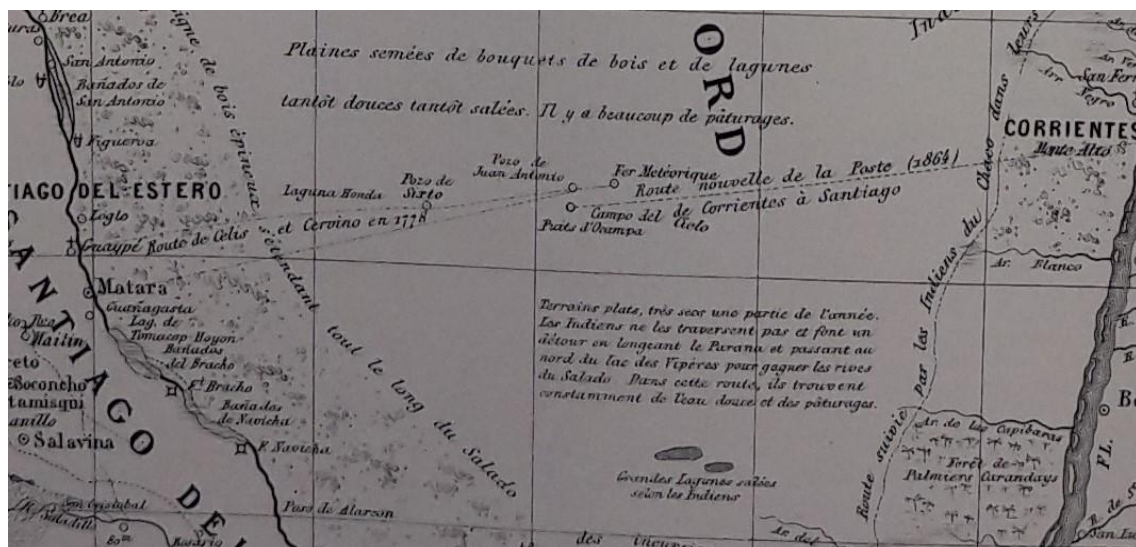 Brea
San Antonio
Bañados de
San Antonio
Figueroa
TIAGO DEL ESTERO
Loglo
Guaypé
Route de Celis et Cervino en 1778
Matara
Guañagasta
Lag. de
Tomacop Hoyon
Bañados
del Bracho
Ft Bracho
Bañados
de Navicha
F. Navicha
Mailin
Soconcho
Salavina
San Cristobal
Saladillo
Paso de Alarcon
SANTIAGO DE
ligne de bois épineux s'étendant tout le long du Salado
Plaines semées de bouquets de bois et de lagunes
tantôt douces tantôt salées. Il y a beaucoup de pâturages.
ORD
Laguna Honda
Pozo de
Sixto
Pozo de
Juan Antonio
Fer Météorique
Route nouvelle de la Poste (1864)
de Corrientes à Santiago
Campo del
Cielo
Puits d'Ocampa
Terrains plats, très secs une partie de l'année.
Les Indiens ne les traversent pas et font un
détour en longeant le Parana et passant au
nord du lac des Vipères pour gagner les rives
du Salado Dans cette route, ils trouvent
constamment de l'eau douce et des pâturages.
Grandes Lagunes salées
selon les Indiens
Route suivie par les Indiens du Chaco dans leurs
CORRIENTES
Monte Alto
Ar. Blanco
Ar. de los Capibaras
Forêt de
Palmiers Carandays
FL.
Ar. del
des